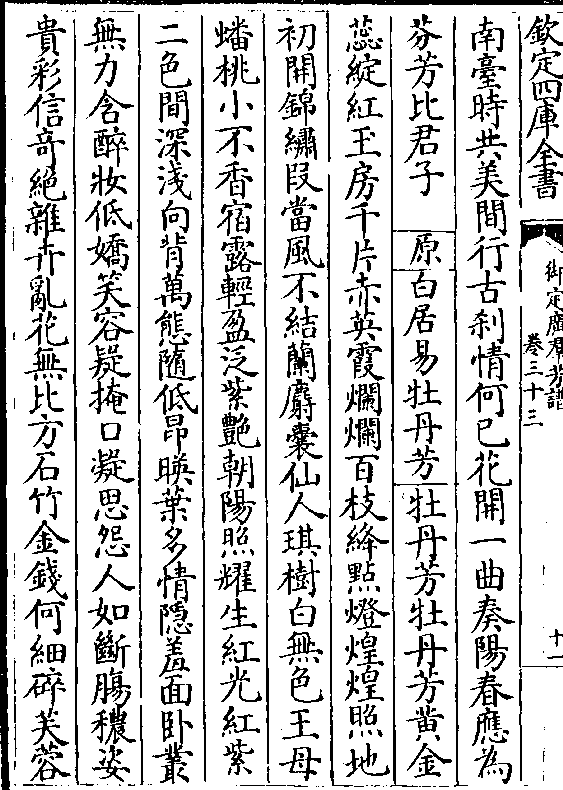 欽定四庫全書
御定廣羣芳譜
卷三十三
十一
南臺時共美間行古刹情何已花開一曲奏陽春應為
芬芳比君子 原 白居易牡丹芳 牡丹芳牡丹芳黄金
蕊綻紅玉房千片赤英霞爛爛百枝絳點燈煌煌照地
初開錦繡段當風不結蘭麝囊仙人琪樹白無色王母
蟠桃小不香宿露輕盈泛紫艷朝陽照耀生紅光紅紫
二色間深淺向背萬態隨低昂暎葉多情隱羞面卧叢
無力含醉妝低嬌笑容疑掩口凝思怨人如斷腸穠姿
貴彩信竒絕雜卉亂花無比方石竹金錢何細碎芙蓉